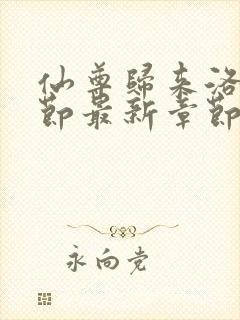 仙尊歸来洛
節最新章節
永向党